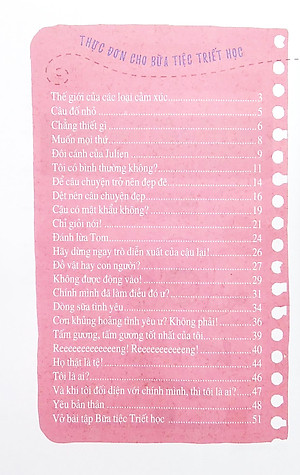 THỰC ĐƠN CHO BỮA TIỆC TRIẾT HỌC
Thế giới của các loại cảm xúc.....3
Câu đố nhỏ.....5
Chẳng thiết gì.....6
Muốn mọi thứ.....8
Đôi cánh của Julien.....9
Tôi có bình thường không?.....11
Để câu chuyện trở nên đẹp đẽ.....14
Dệt nên câu chuyện đẹp.....16
Cậu có mật khẩu không?.....19
Chỉ giỏi nói!.....21
Đánh lừa Tom.....24
Hãy dừng ngay trò diễn xuất của cậu lại!.....26
Đồ vật hay con người?.....27
Không được động vào!.....29
Chính mình đã làm điều đó ư?.....31
Dòng sữa tình yêu.....34
Cơn khủng hoảng tình yêu ư? Không phải!.....36
Tấm gương, tấm gương tốt nhất của tôi.....39
Reeeeeeeeeeeeng! Reeeeeeeeeeeng!.....40
Họ thật là tệ!.....44
Tôi là ai?.....46
Và khi tôi đối diện với chính mình, thì tôi là ai?.....47
Yêu bản thân.....48
Vở bài tập Bữa tiệc Triết học.....51